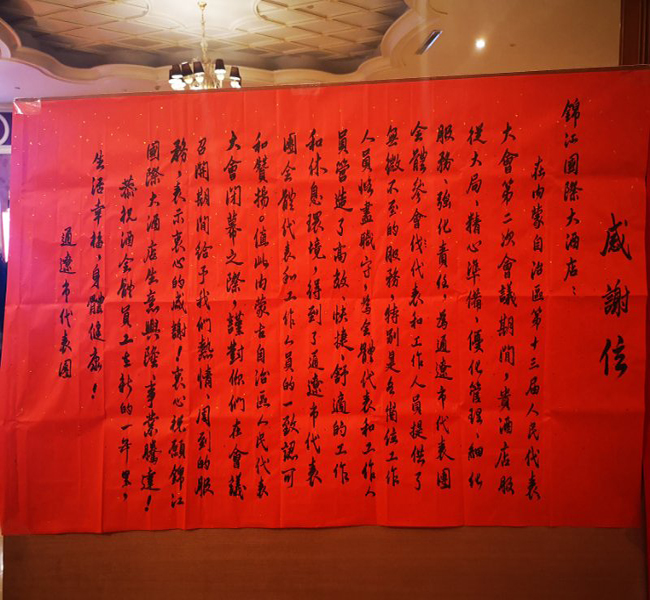 感謝信
錦江國際大酒店：
在內蒙古自治區第十三届人民代表
大會第二次會議期間，貴酒店服
從大局、精心準備、優化管理、細化
服務、強化責任，為通遼市代表團
全體參會代表和工作人員提供了
無微不至的服務，特别是各崗位工作
人員恪盡職守，為全體代表和工作人
員營造了高效、快捷、舒適的工作
和休息環境，得到了通遼市代表
團全體代表和工作人員的一致認可
和贊揚。值此內蒙古自治區人民代表
大會閉幕之際，謹對你們在會議
召開期間給予我們熱情、周到的服
務，表示衷心的感謝！衷心祝願錦江
國際大酒店生意興隆、事業騰達！
恭祝酒全體員工在新的一年里，
生活幸福，身體健康！
通遼市代表團